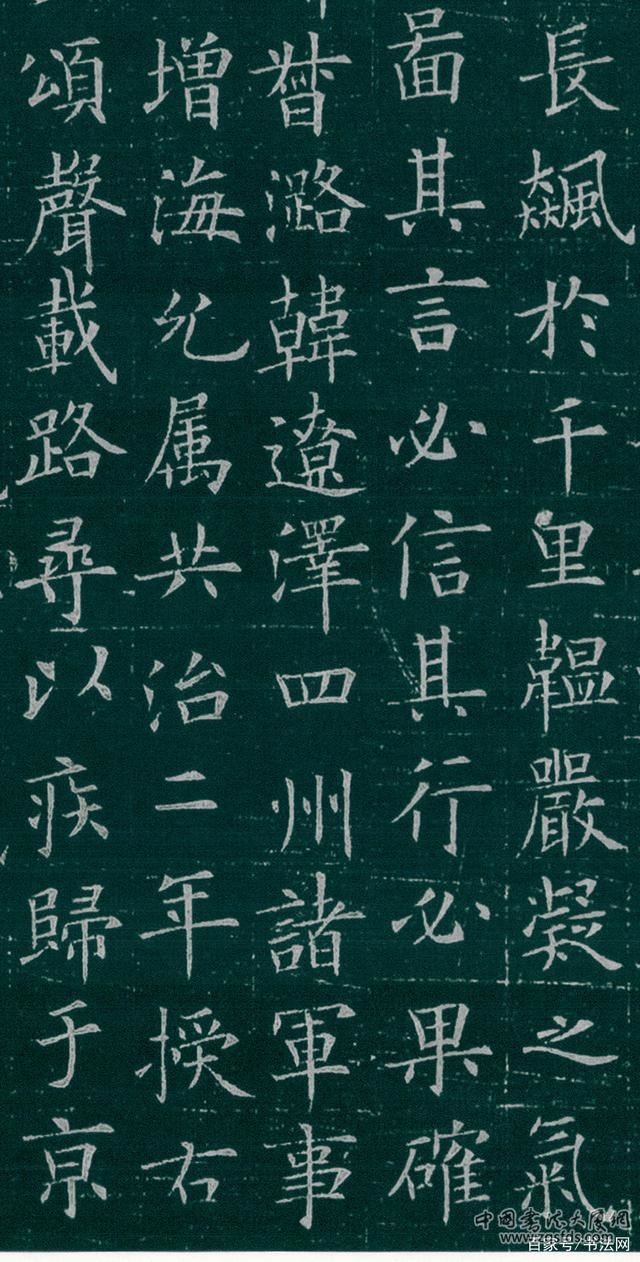 長飇於千里韞嚴凝之氣
啚其言必信其行必果確
督潞韓遼澤四州諸軍事
增海兊属共治二年授右
頌聲載路尋以疾歸于京
中国书法大展网
www.zgsfds.com
百家号/书法网